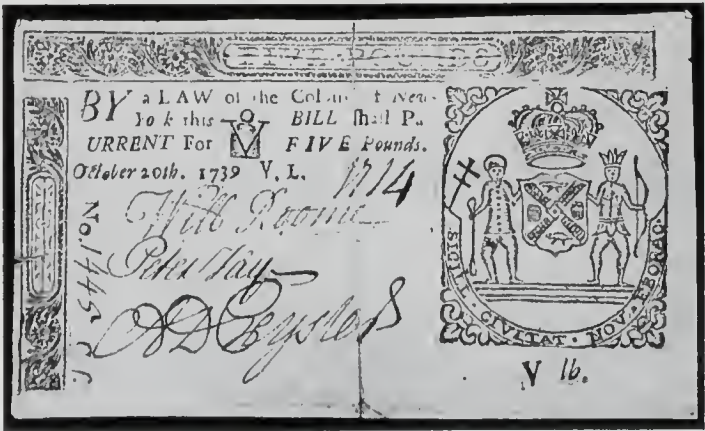 FIVE POUNDS
BY a LAW of the Colony of New-
York this BILL shall Pass
URRENT For V FIVE Pounds.
October 20th. 1739 V. L.
1714
Will Roome
Peter Jay
A D Peyster
No. 1445
SIGILL · CIVITAT · NOV · EBORAC ·
V lb.